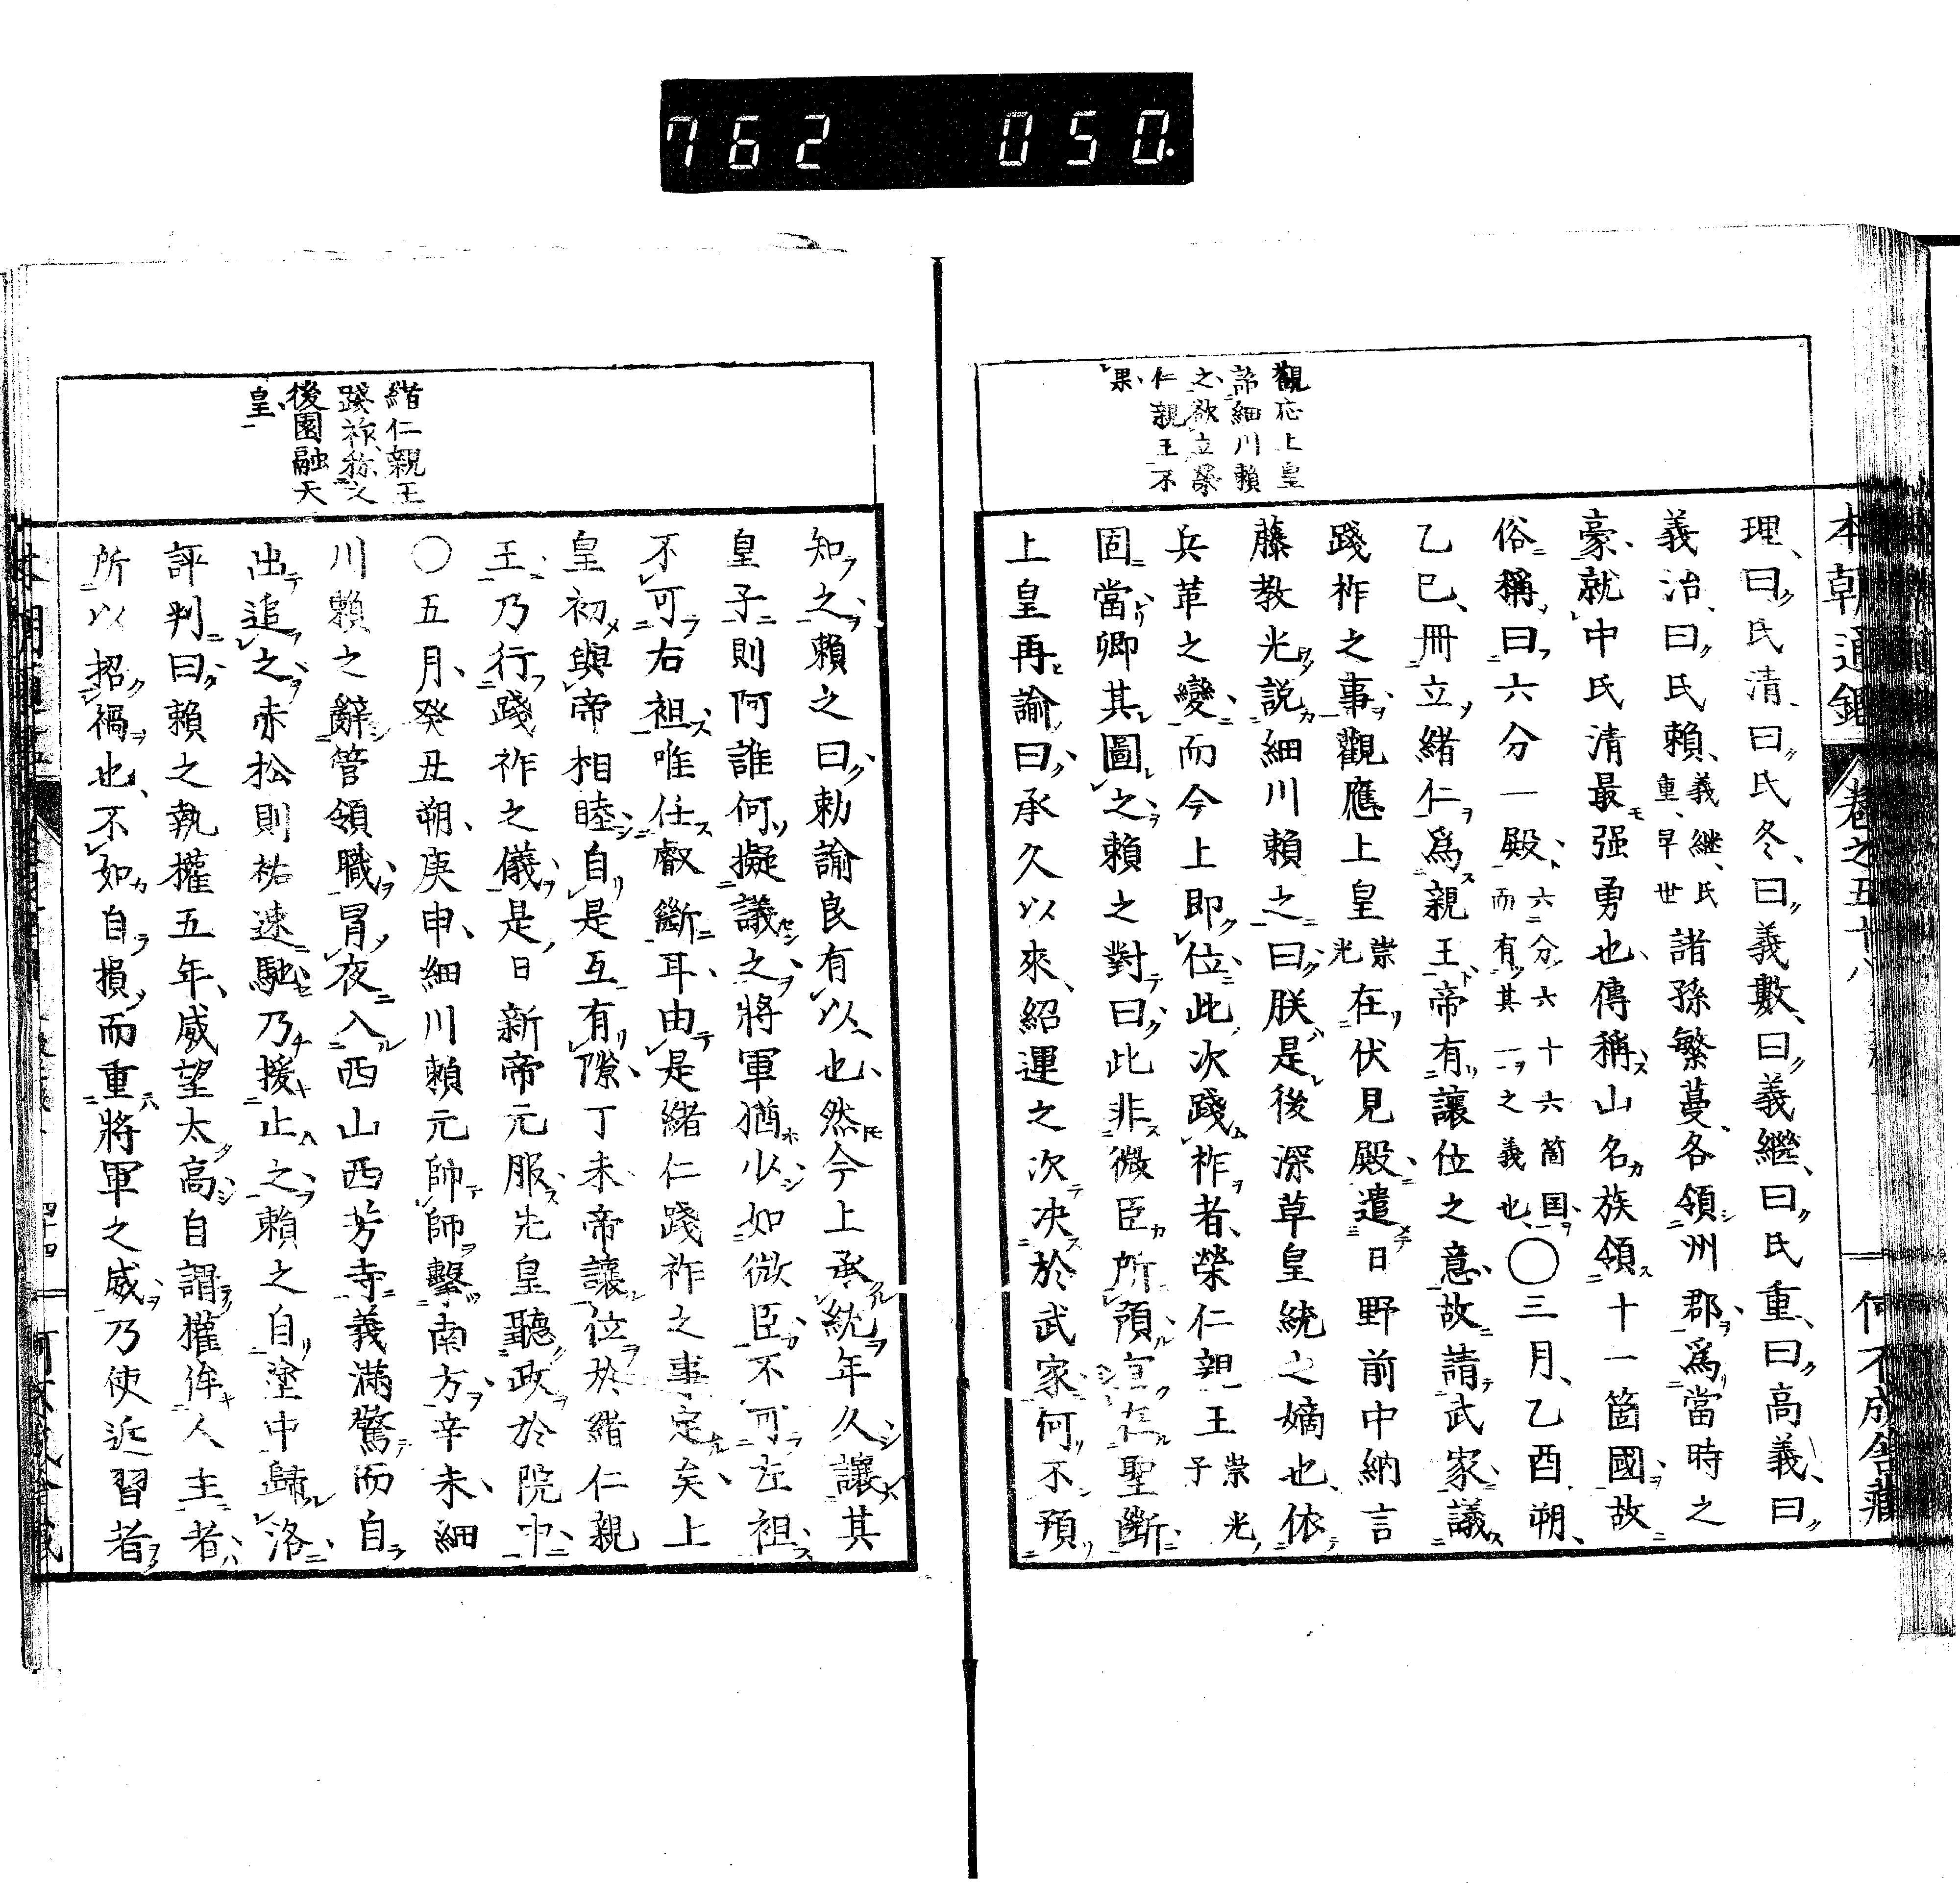 762 050.
觀応上皇
諦細川賴
之欲立榮
仁親王不
果
本朝通鑑 卷之五十八
理、曰氏清、曰氏冬、曰義數、曰義繼、曰氏重、曰高義、曰
義治、曰氏賴、義繼、氏重、早世諸孫繁蔓、各領州郡、爲當時之
豪、就中氏清最强勇也、傳稱山名族領十一箇國、故
俗稱曰六分一殿、六分六十六箇国、而有其一之義也、〇三月、乙酉朔、
乙巳、冊立緒仁爲親王、帝有讓位之意、故請武家議
踐祚之事、觀應上皇崇光在伏見殿、遣日野前中納言
藤教光說細川賴之曰、朕是後深草皇統之嫡也、依
兵革之變、而今上即位、此次踐祚者、榮仁親王崇光子
固當、卿其圖之、賴之對曰、此非微臣所預、宜在聖斷、
上皇再諭曰、承久以來、紹運之次決於武家、何不預
知之、賴之曰、勅諭良有以也、然今上承統年久、讓其
皇子則阿誰何擬議之、將軍猶少、如微臣、不可左袒、
不可右袒、唯任叡斷耳、由是緒仁踐祚之事定矣、上
皇初與帝相睦、自是互有隙、丁未、帝讓位於緒仁親
王、乃行踐祚之儀、是日新帝元服、先皇聽政於院中、
〇五月、癸丑朔、庚申、細川賴元帥師擊南方、辛未、細
川賴之辭管領職、冒夜入西山西芳寺、義滿驚而自
出追之、赤松則祐速馳乃援止之、賴之自塗中歸洛、
評判曰、賴之執權五年、威望太高、自謂權侔人主者、
所以招禍也、不如自損而重將軍之威、乃使近習者
緒仁親王
踐祚、称之
後圓融天
皇
四十四